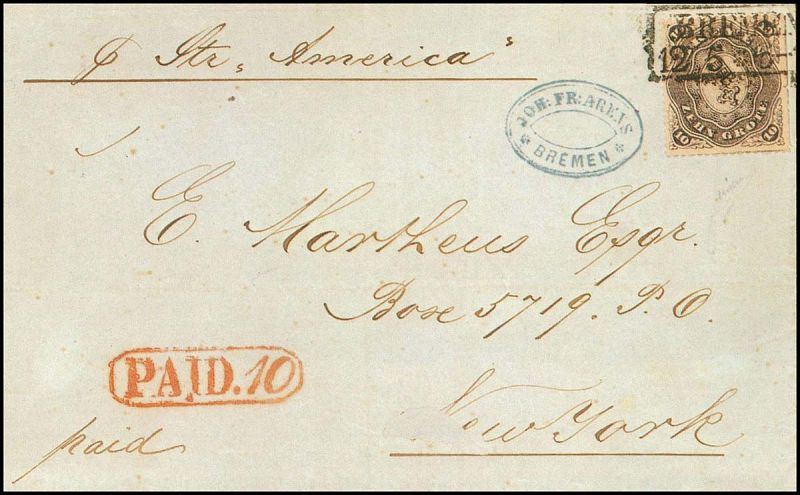 p Str „ America "
BREMEN
12
ZEHN GROTE
10 10
JOH: FR: ARENS
* BREMEN *
E. Martheus Esqr.
Box 5719. P. O.
PAID. 10
New York
paid